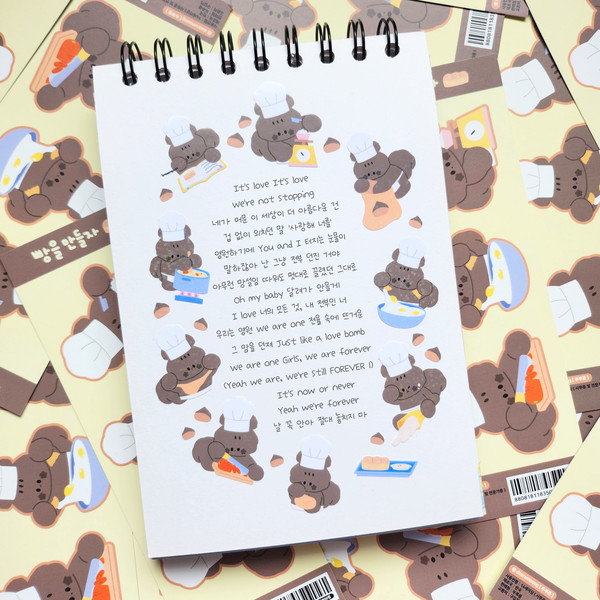 It's love It's love
we're not stopping
네가 어둔 이 세상이 더 아름다운 건
겁 없이 외치던 말 '사랑해 너를'
영원하기에 You and I 터지는 눈물이
말하잖아 난 그냥 전부 던진 거야
아무런 망설임 따위도 없대로 끌렸던 그대로
Oh my baby 달려가 안을게
I love 너의 모든 것, 내 전부인 너
우리는 영원 we are one 전율 속에 뜨거움
그 맘을 던져 Just like a love bomb
we are one Girls, we are forever
(Yeah we are, we're still FOREVER 1)
It's now or never
Yeah we're forever
날 꼭 안아 절대 놓치지 마
빵을 만들자